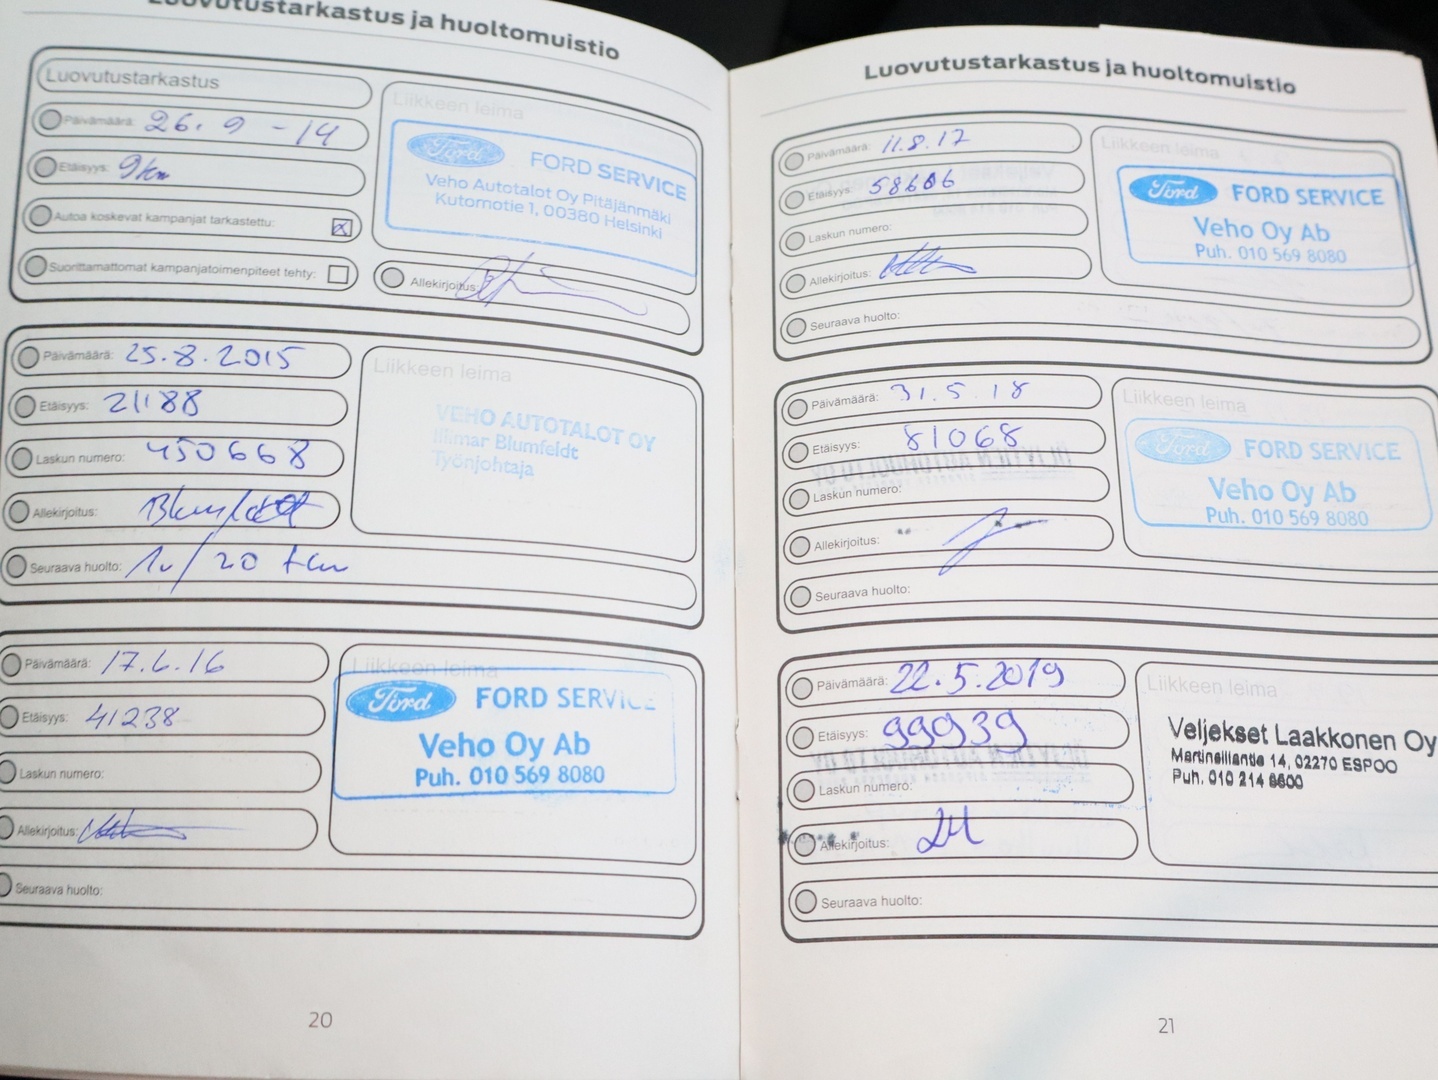 Luovutustarkastus ja huoltomuistio
Luovutustarkastus
Päivämäärä: 26. 9 -14
Etäisyys: 9km
Autoa koskevat kampanjat tarkastettu: X
Suorittamattomat kampanjatoimenpiteet tehty:
Liikkeen leima
Ford FORD SERVICE
Veho Autotalot Oy Pitäjänmäki
Kutomotie 1, 00380 Helsinki
Allekirjoitus:
Päivämäärä: 25.8.2015
Etäisyys: 21188
Laskun numero: 450668
Allekirjoitus: Blumfeldt
Seuraava huolto: 1v/20 tkm
Liikkeen leima
VEHO AUTOTALOT OY
Ilmar Blumfeldt
Työnjohtaja
Päivämäärä: 17.6.16
Etäisyys: 41238
Laskun numero:
Allekirjoitus:
Seuraava huolto:
Liikkeen leima
Ford FORD SERVICE
Veho Oy Ab
Puh. 010 569 8080
20
Luovutustarkastus ja huoltomuistio
Päivämäärä: 11.8.17
Etäisyys: 58606
Laskun numero:
Allekirjoitus:
Seuraava huolto:
Liikkeen leima
Ford FORD SERVICE
Veho Oy Ab
Puh. 010 569 8080
Päivämäärä: 31.5.18
Etäisyys: 81068
Laskun numero:
Allekirjoitus:
Seuraava huolto:
Liikkeen leima
Ford FORD SERVICE
Veho Oy Ab
Puh. 010 569 8080
Päivämäärä: 22.5.2019
Etäisyys: 99939
Laskun numero:
Allekirjoitus:
Seuraava huolto:
Liikkeen leima
Veljekset Laakkonen Oy
Martinsillantie 14, 02270 ESPOO
Puh. 010 214 8600
21